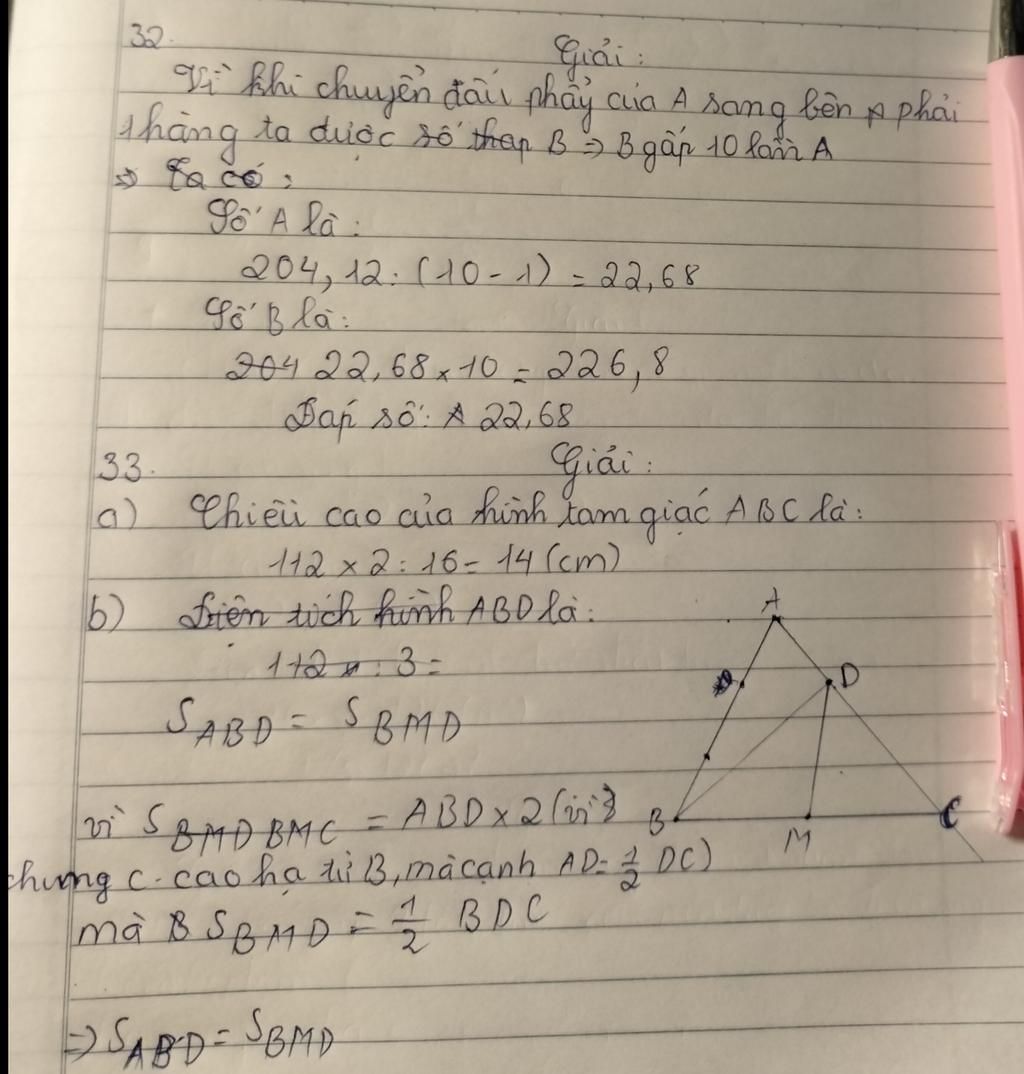 32.
Giải:
Vì khi chuyển dấu phẩy của A sang bên phải
1 hàng ta được số thap B => B gấp 10 lần A
=> Ta có:
Số A là:
204,12 : (10 - 1) = 22,68
Số B là:
204 22,68 x 10 = 226,8
Đáp số: A 22,68
33.
Giải:
a) Chiều cao của hình tam giác ABC là:
112 x 2 : 16 = 14 (cm)
b) Diện tích hình ABD là:
112 : 3 =
S ABD = S BMD
A
D
B
M
C
vì S BMD BMC = ABD x 2 (vì
chung c. cao hạ từ B, mà cạnh AD = 1/2 DC)
mà B S BMD = 1/2 BDC
=> S ABD = S BMD